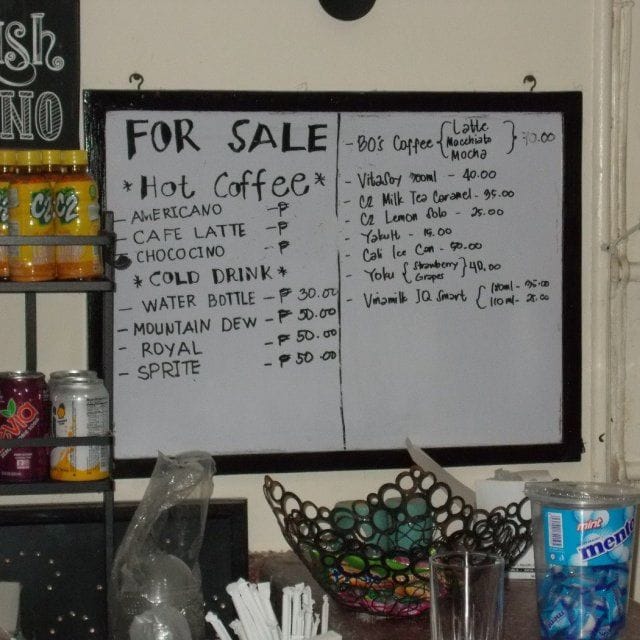 ush
NO
FOR SALE
*Hot Coffee*
- AMERICANO -₱
- CAFE LATTE -₱
- CHOCOCINO -₱
*COLD DRINK*
- WATER BOTTLE -₱ 30.00
- MOUNTAIN DEW -₱ 50.00
- ROYAL -₱ 50.00
- SPRITE -₱ 50.00
- BO's Coffee { Latte
Macchiato
Mocha } 70.00
- Vitasoy 300ml - 40.00
- C2 Milk Tea Caramel - 35.00
- C2 Lemon Solo - 25.00
- Yakult - 15.00
- Cali Ice Can - 50.00
- Yoku { Strawberry
Grapes } 40.00
- Vitamilk IQ Smart {
110ml - 25.00
C2
C2
mint
mento